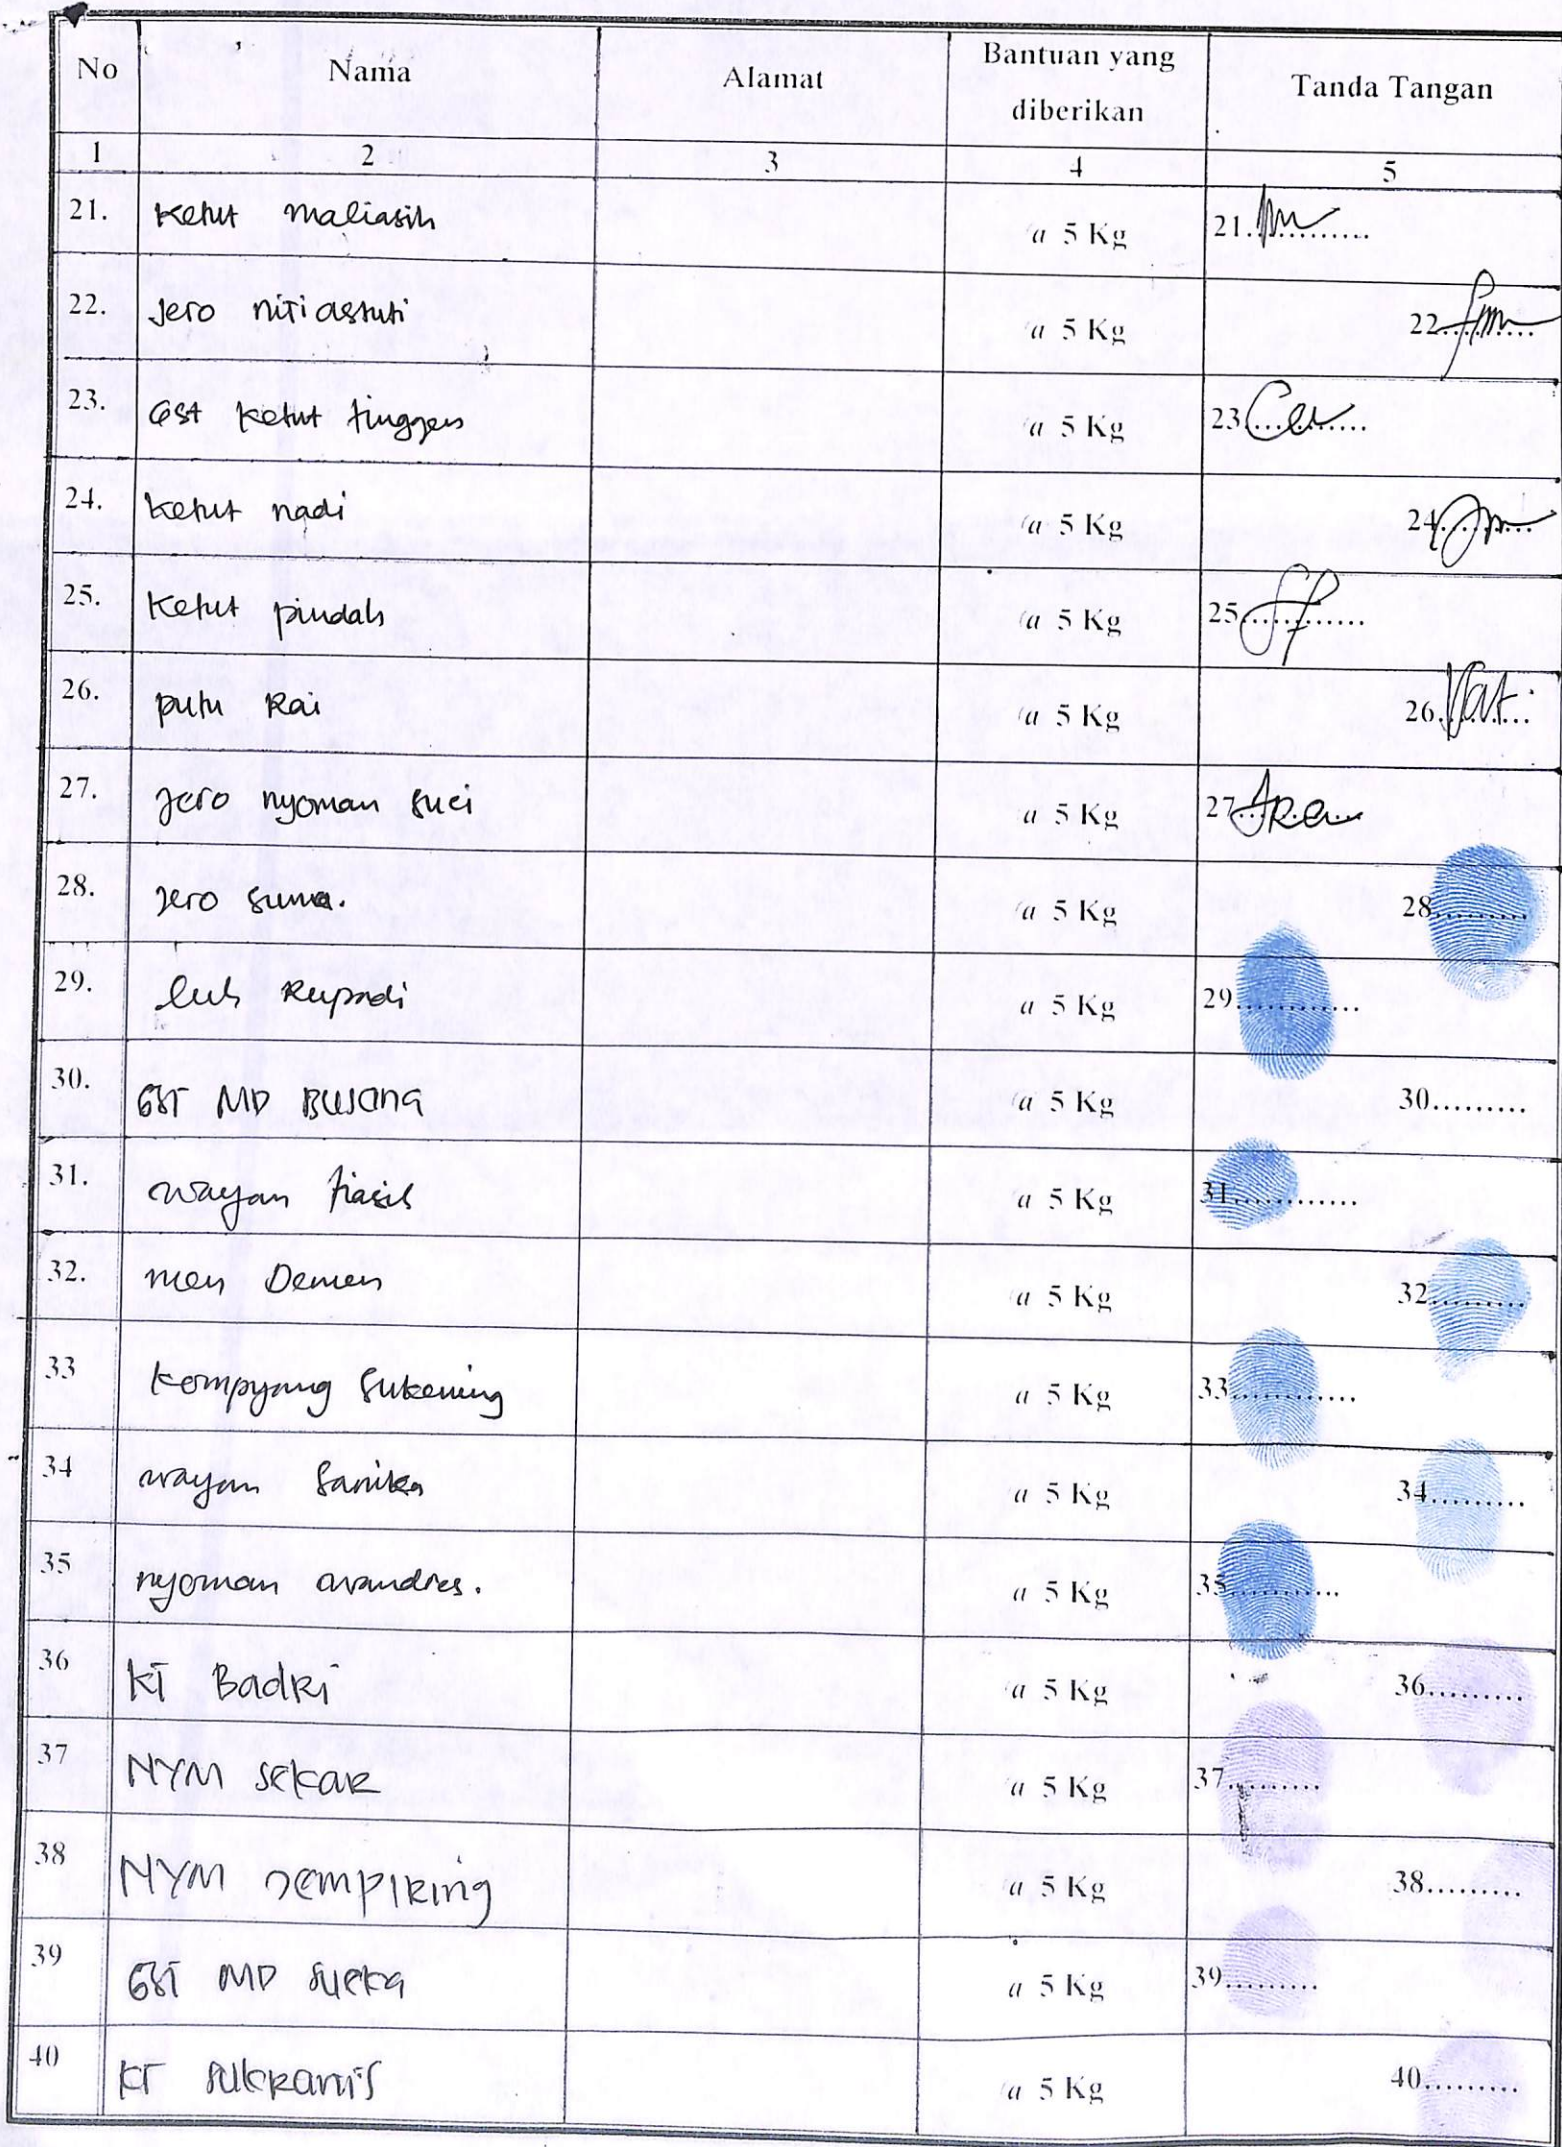 No Nama Alamat Bantuan yang diberikan Tanda Tangan
1 2 3 4 5
21. Ketut maliasih a 5 Kg 21............
22. Jero nitiastuti a 5 Kg 22..........
23. Gst Ketut tinggen a 5 Kg 23............
24. Ketut nadi a 5 Kg 24..........
25. Ketut pindah a 5 Kg 25............
26. putu Rai a 5 Kg 26..........
27. Jero nyoman suci a 5 Kg 27............
28. Jero suma. a 5 Kg 28..........
29. luh Rupadi a 5 Kg 29............
30. GST MD BUJANA a 5 Kg 30.........
31. wayan a 5 Kg 31............
32. men Demen a 5 Kg 32..........
33 Kompyang Sukening a 5 Kg 33............
34 wayan Sanika a 5 Kg 34.........
35 nyoman a 5 Kg 35...........
36 KT BadRi a 5 Kg 36.........
37 NYM SekaR a 5 Kg 37.........
38 NYM JempiRing a 5 Kg 38.........
39 GST MD a 5 Kg 39.........
40 KT a 5 Kg 40.........